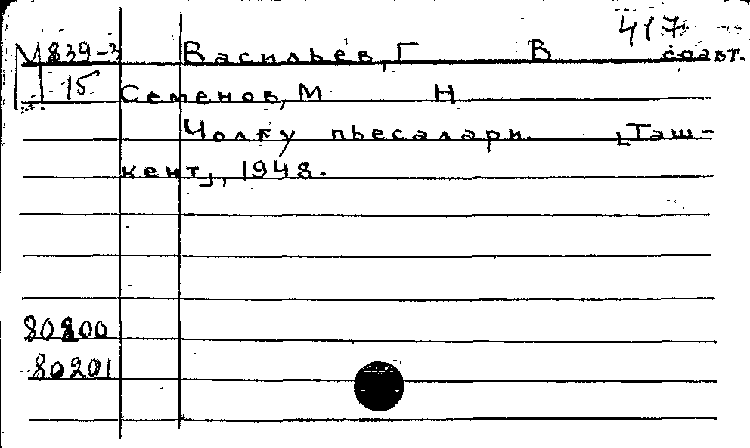 417
М839-3 Васильев, Г В соавт.
15 Семенов, М Н
Чолғу пьесалари. [Таш-
кент], 1948.
80200
80201